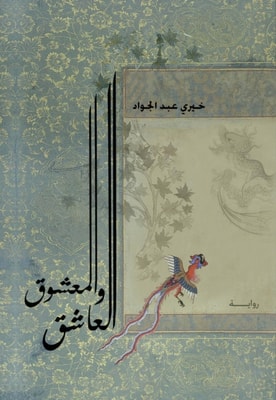 خيري عبد الجواد
العاشق
والمعشوق
رواية